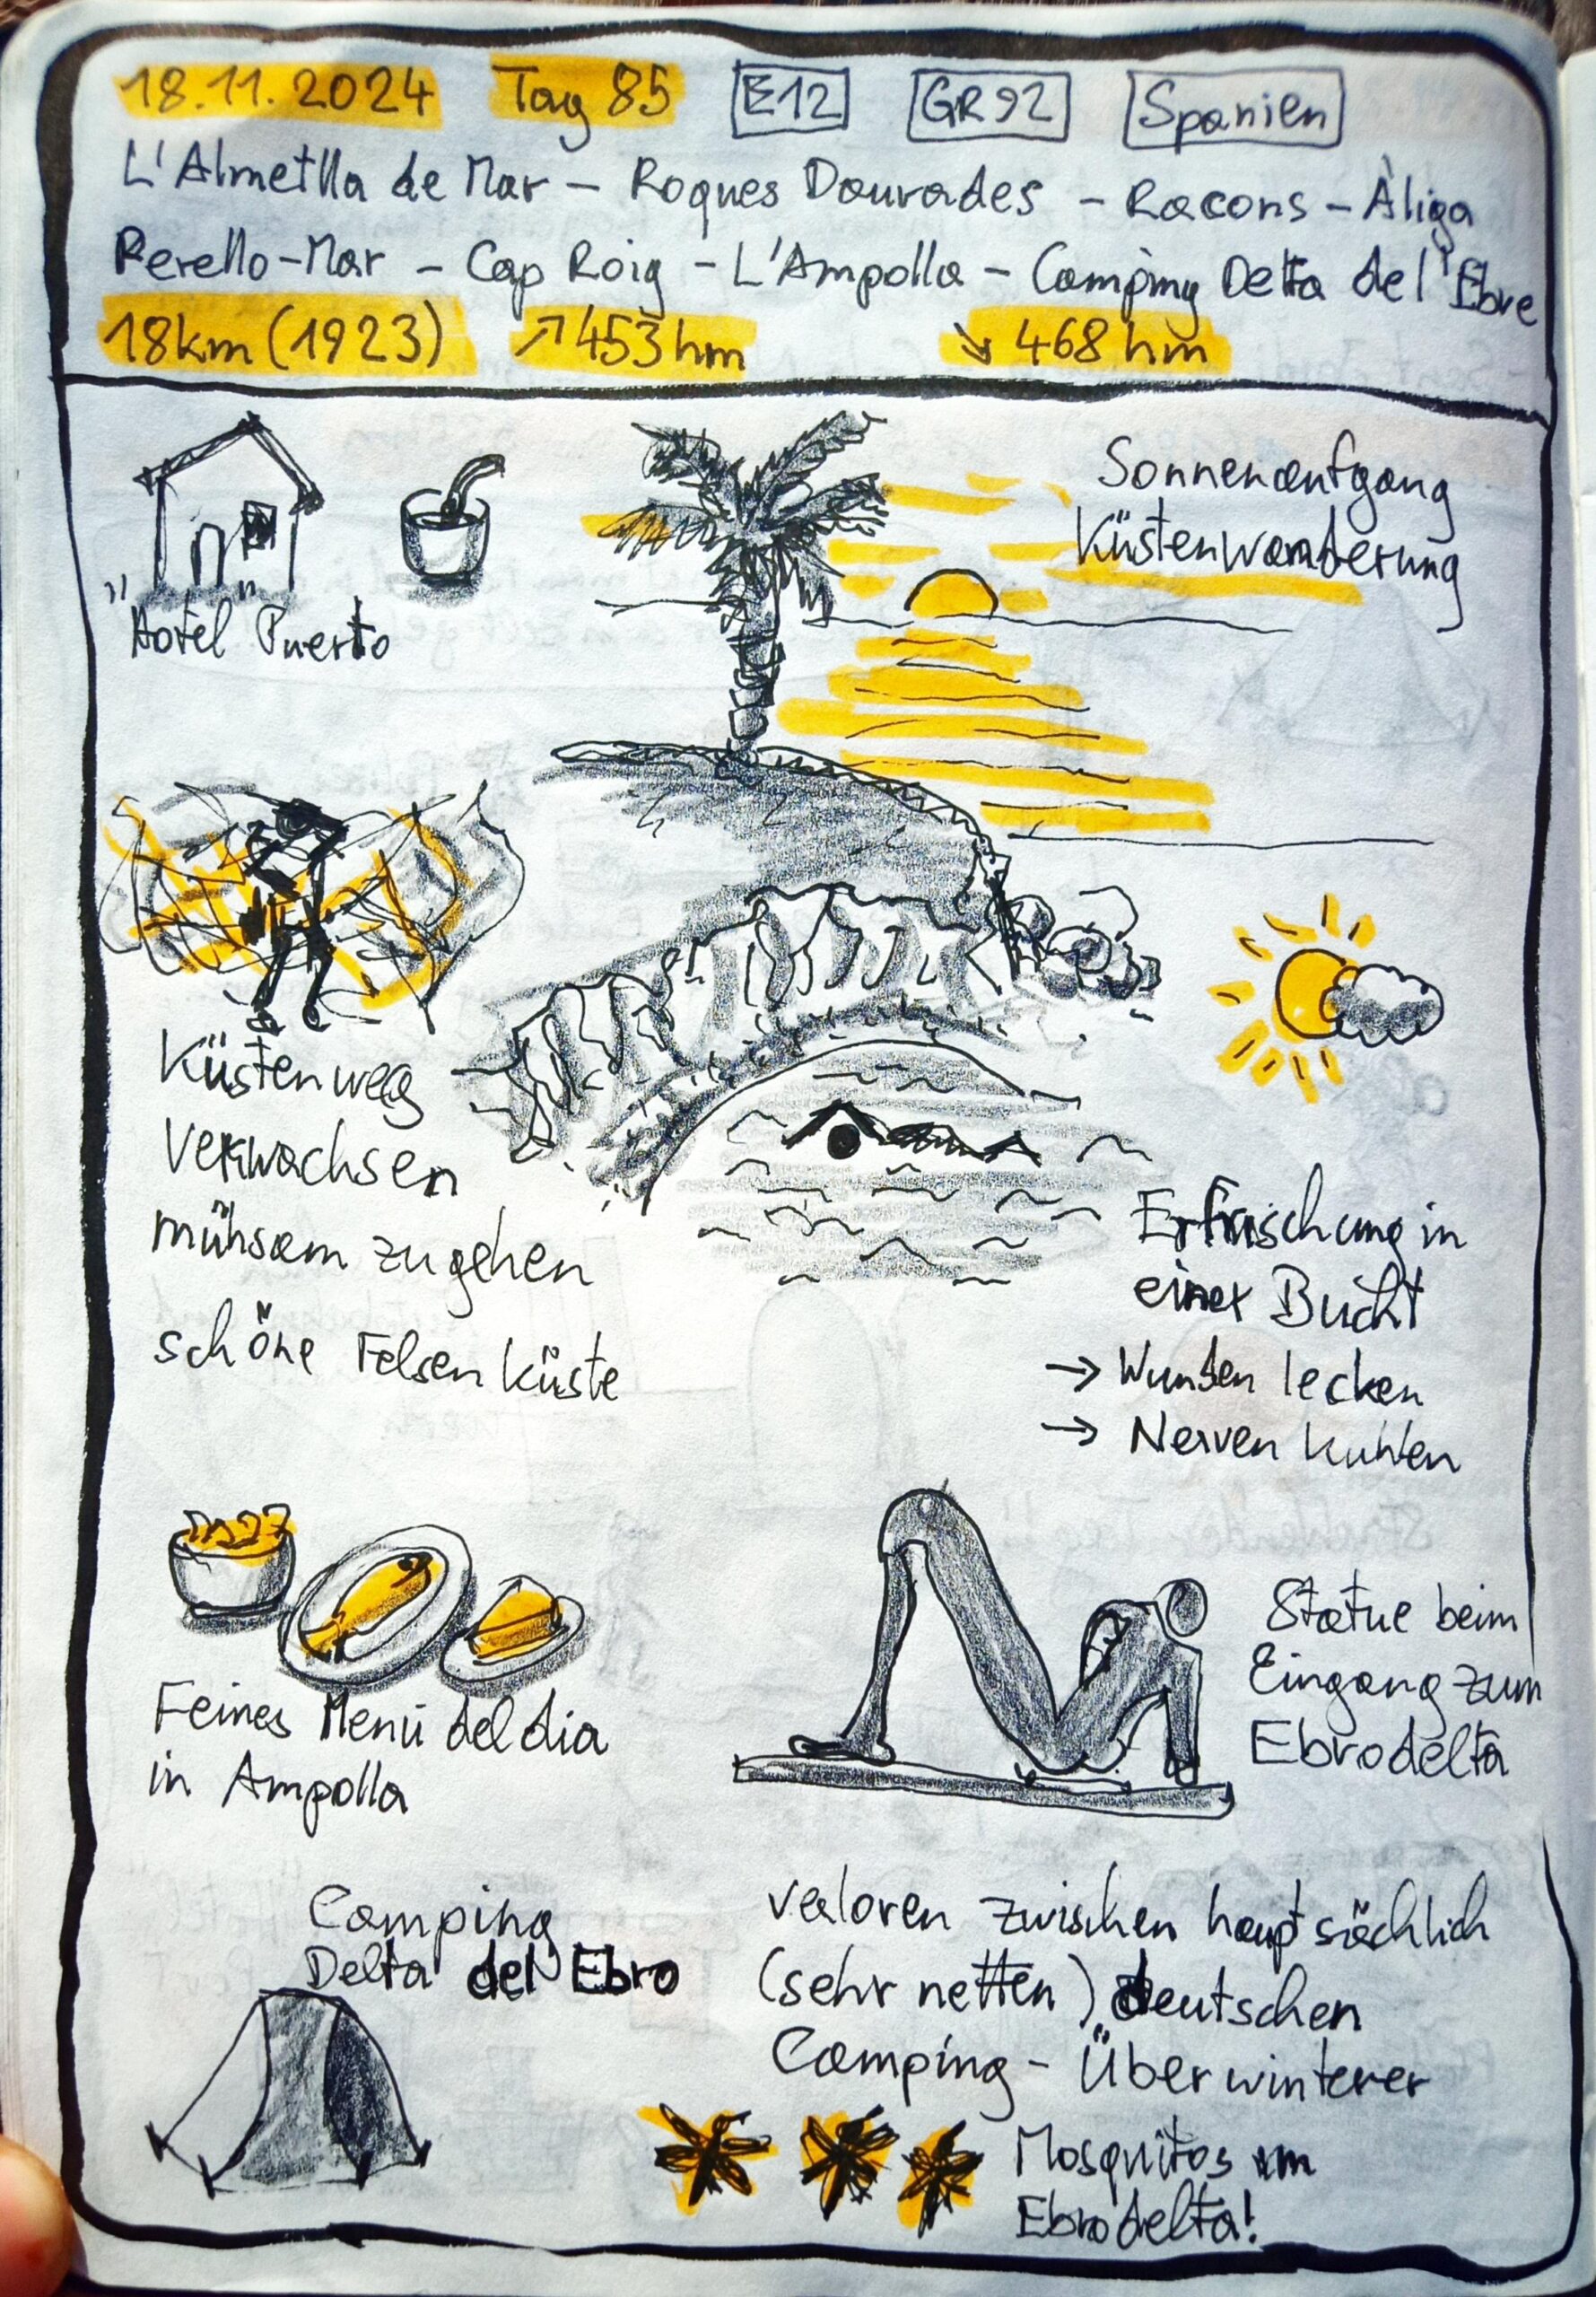 18.11.2024 Tag 85 E12 GR92 Spanien
L'Almetlla de Mar – Roques Daurades – Racons – Àliga
Perello-Mar – Cap Roig – L'Ampolla – Camping Delta del'Ebre
18km (1923) ↗453hm ↘468hm
"Hotel" Puerto
Sonnenaufgang
Küstenwanderung
Küstenweg
verwachsen
mühsam zu gehen
schöne Felsenküste
Erfrischung in
einer Bucht
→ Wunden lecken
→ Nerven kühlen
Feines Menü del dia
in Ampolla
Statue beim
Eingang zum
Ebrodelta
Camping
Delta del Ebro
verloren zwischen hauptsächlich
(sehr netten) deutschen
Camping-Überwinterer
Mosquitos im
Ebrodelta!